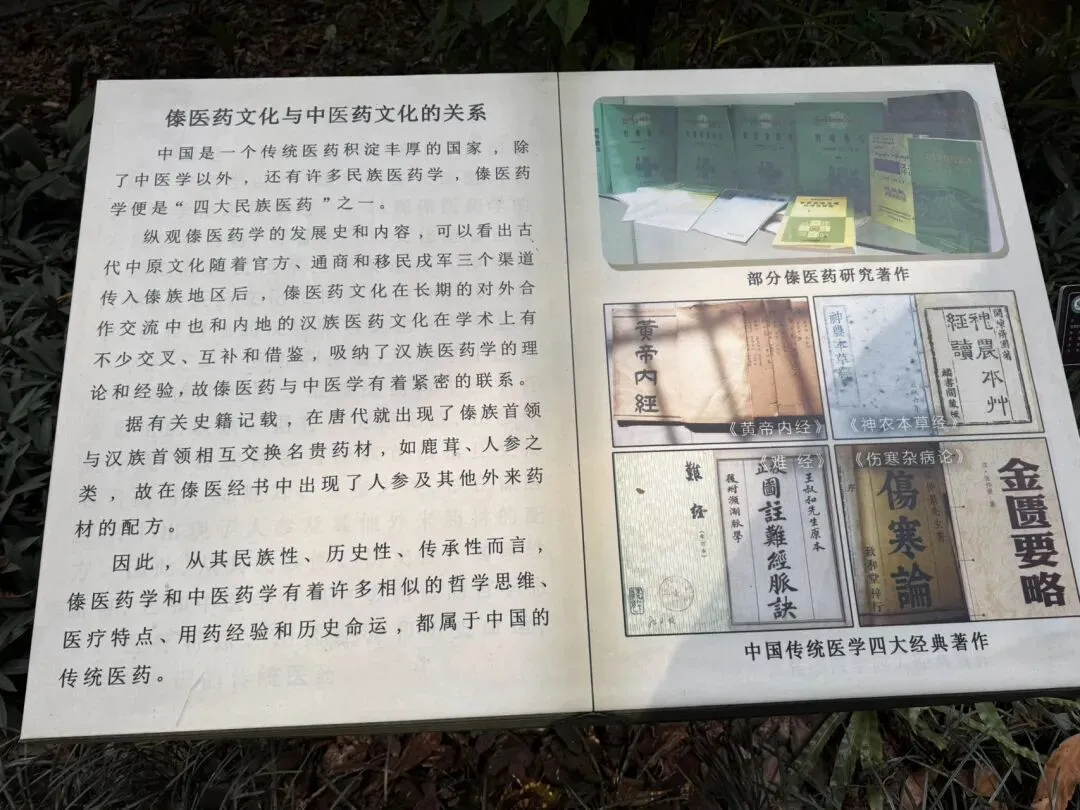 傣医药文化与中医药文化的关系
中国是一个传统医药积淀丰厚的国家，除
了中医学以外，还有许多民族医药学，傣医药
学便是“四大民族医药”之一。
纵观傣医药学的发展史和内容，可以看出古
代中原文化随着官方、通商和移民戍军三个渠道
传入傣族地区后，傣医药文化在长期的对外合
作交流中也和内地的汉族医药文化在学术上有
不少交叉、互补和借鉴，吸纳了汉族医药学的理
论和经验，故傣医药与中医学有着紧密的联系。
据有关史籍记载，在唐代就出现了傣族首领
与汉族首领相互交换名贵药材，如鹿茸、人参之
类，故在傣医经书中出现了人参及其他外来药
材的配方。
因此，从其民族性、历史性、传承性而言，
傣医药学和中医药学有着许多相似的哲学思维、
医疗特点、用药经验和历史命运，都属于中国的
传统医药。
部分傣医药研究著作
黄帝内經
《黄帝内经》
神農本草
神農本艸
經讀
《神农本草经》
難經
圖註難經脈訣
王叔和先生原本
《难 经》
《伤寒杂病论》
傷寒論
致和堂梓行
金匮要略
中国传统医学四大经典著作